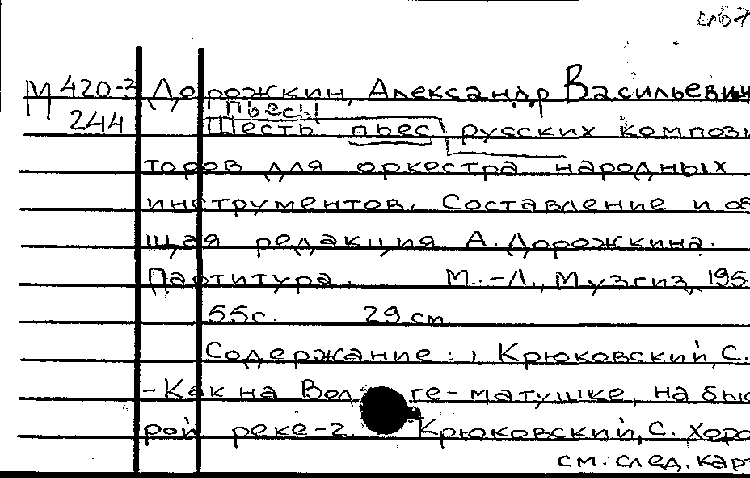 467
М 420-3 Дорожкин, Александр Васильевич
Пьесы
244 Шесть пьес русских композі
торов для оркестра народных
инструментов. Составление и об
щая редакция А. Дорожкина.
Партитура. М.-Л., Музгиз, 195
55с. 29 см
Содержание: 1 Крюковский, С.
-Как на Вол ге-матушке, на быс
рой реке-2. Крюковский, С. Хоро
см. след. карт